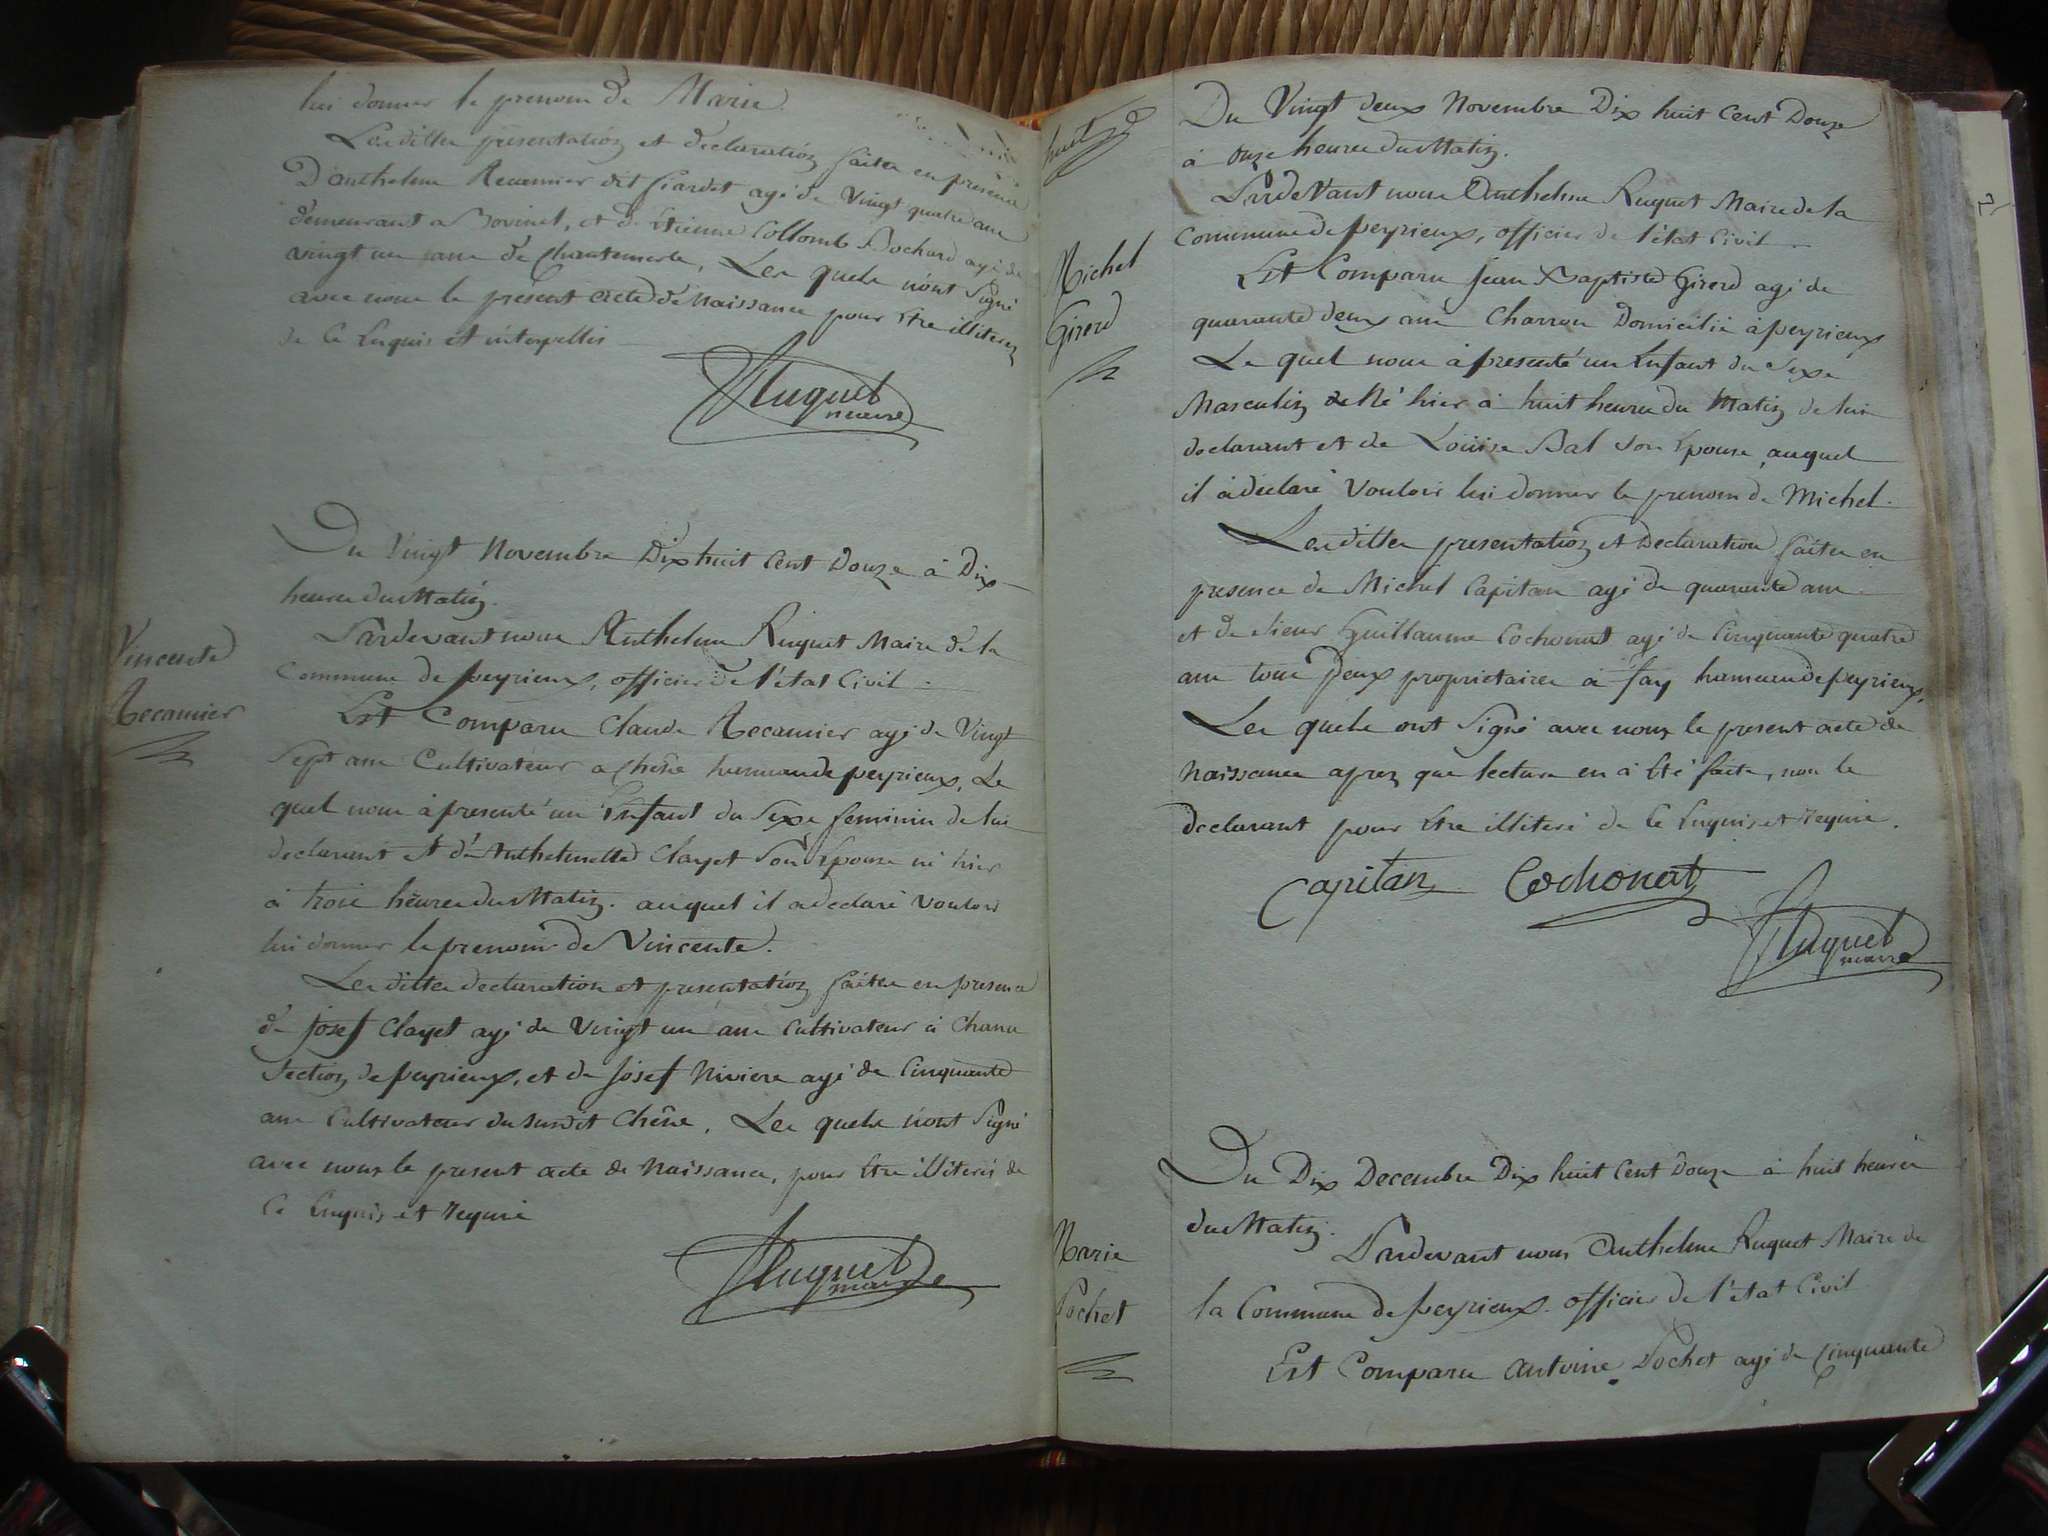 lui donner le prenom de Marie.
Lesdittes présentation et déclaration faites en présence
D'anthelme Recamier dit Giardet agé de Vingt quatre ans
demeurant a Bovinel, et d. Etienne Collomb Bochard agé de
vingt un ans de Chantemerle, Les quels n'ont Signé
avec nous le présent acte de Naissance pour Etre illiteres
de Ce Enquis et interpellés
Huguet
maire
Du Vingt Novembre Dix huit Cent Douze à Dix
heures du Matin.
Pardevant nous Anthelme Ruguet Maire de la
Commune de peyrieux, officier de l'état Civil.
Vincente
Recamier
Est Comparu Claude Recamier agé de Vingt
Sept ans Cultivateur a Chêne hameau de peyrieux, Le
quel nous à presenté un Enfant du Sexe feminin de lui
declarant et d'Anthelmette Clayet Son Epouse né hier
à trois heures du Matin. auquel il a declaré Vouloir
lui donner le prenom de Vincente.
Lesdittes declaration et presentation faites en presence
de josef Clayet agé de Vingt un ans Cultivateur à Chanu
Section de peyrieux, et de Josef Niviere agé de Cinquante
ans Cultivateur du Susdit Chêne. Les quels n'ont Signé
avec nous le present acte de Naissance, pour Etre illiterés de
Ce Enquis et requis
Huguet
maire
huit
Du Vingt deux Novembre Dix huit Cent Douze
à Onze heures du Matin.
Pardevant nous Anthelme Ruguet Maire de la
Commune de peyrieux, officier de l'état Civil.
Michel
Girerd
Est Comparu Jean Baptiste Girerd agé de
quarante deux ans Charron Domicilié à peyrieux
Le quel nous à presenté un Enfant du Sexe
Masculin Né hier à huit heures du Matin de lui
declarant et de Louise Bal Son Epouse, auquel
il à declaré Vouloir lui donner le prenom de Michel.
Lesdittes presentation et Declaration faites en
presence de Michel Capitan agé de quarante ans
et de Sieur Guillaume Cochonat agé de Cinquante quatre
ans tous Deux proprietaires à fay hameau de peyrieux,
Les quels ont Signé avec nous le present acte de
Naissance aprez que lecture en à Eté faite, non le
declarant pour Etre illiteré de Ce Enquis et requis.
Capitan Cochonat
Huguet
maire
Du Dix Decembre Dix huit Cent Douze à huit heures
du Matin.
Pardevant nous Anthelme Ruguet Maire de
la Commune de peyrieux. officier de l'état Civil
Marie
Pochet
Est Comparu Antoine Pochet agé de Cinquante